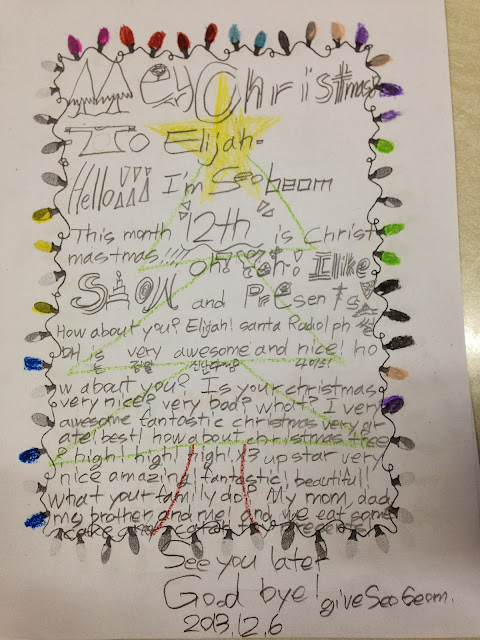 Merry Christmas
To Elijah-
Hello!!! I'm Seobeom
This month 12th is Christ
mastmas!!! oh! yeh! I like
SNOW and PresentS
How about you? Elijah! santa Rudolph
is very awesome and nice! ho
w about you? Is your christmas
very nice? very bad? what? I very
awesome fantastic christmas very gr
ate! best! how about christmas tree
? high! high! high! x3 up star very
nice amazing! fantastic! beautiful!
what your family do? My mom, dad,
my brother and me! and we eat some
cake and
See you later
Good bye! give SeoBeom.
2013.12.6